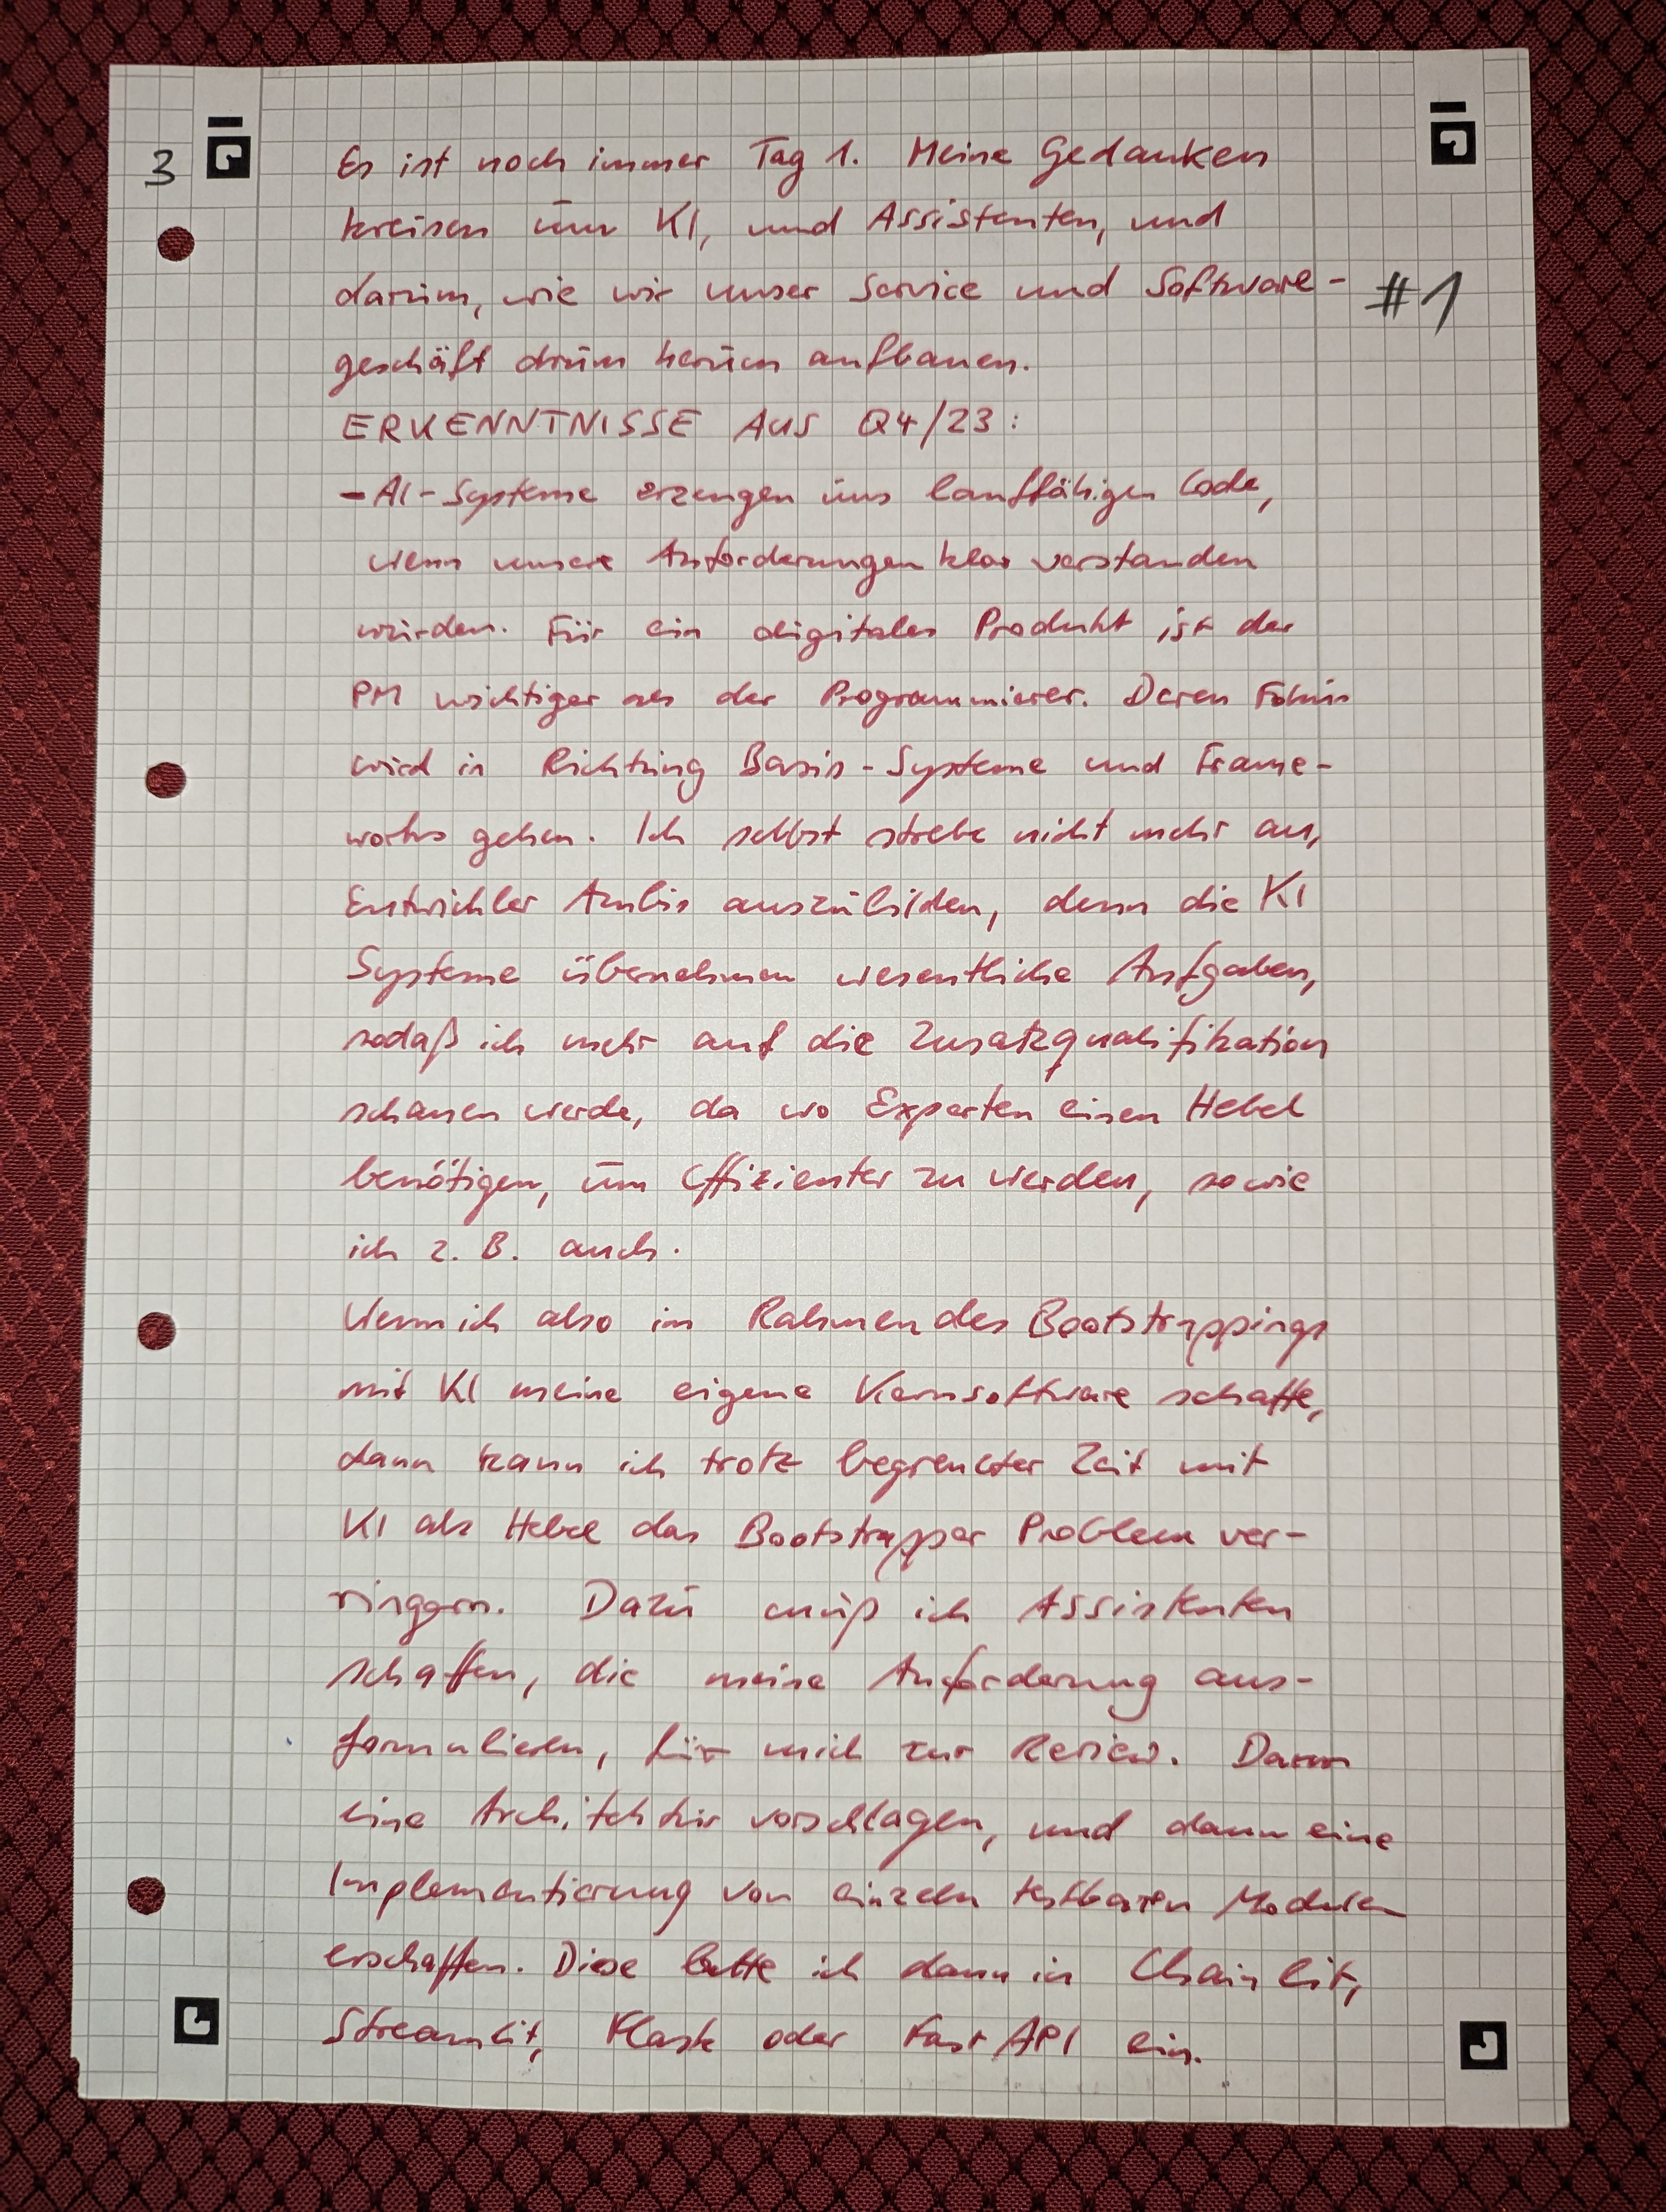 3
Es ist noch immer Tag 1. Meine Gedanken
kreisen um KI, und Assistenten, und
darum, wie wir unser Service und Software-
#1
geschäft drum herum aufbauen.
ERKENNTNISSE AUS Q4/23:
- AI-Systeme erzeugen uns lauffähigen Code,
wenn unsere Anforderungen klar verstanden
wurden. Für ein digitales Produkt ist der
PM wichtiger als der Programmierer. Deren Fokus
wird in Richtung Basis-Systeme und Frame-
works gehen. Ich selbst strebe nicht mehr an,
Entwickler Azubis auszubilden, denn die KI
Systeme übernehmen wesentliche Aufgaben,
sodaß ich mehr auf die Zusatzqualifikation
schauen werde, da wo Experten einen Hebel
benötigen, um effizienter zu werden, sowie
ich z. B. auch.
Wenn ich also im Rahmen des Bootstrappings
mit KI meine eigene Kernsoftware schaffe,
dann kann ich trotz begrenzter Zeit mit
KI als Hebel das Bootstrapper Problem ver-
ringern. Dazu muß ich Assistenten
schaffen, die meine Anforderung aus-
formulieren, für mich zur Review. Dann
eine Architektur vorschlagen, und dann eine
Implementierung von einzeln testbaren Modulen
erschaffen. Diese bette ich dann in Chainlit,
Streamlit, Flask oder FastAPI ein.